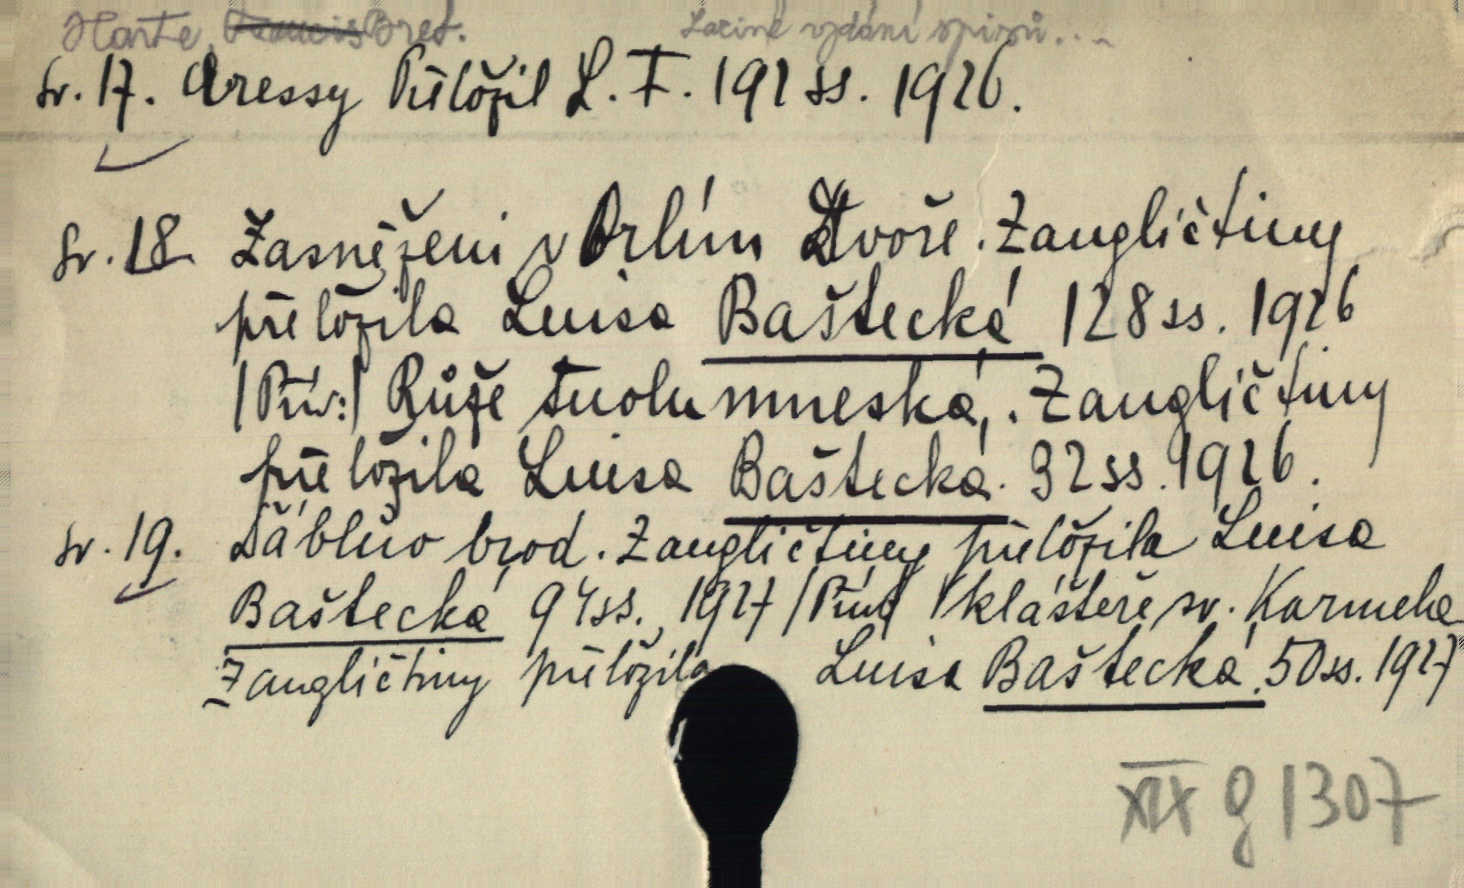 Harte, Francis Bret. Laciné vydání spisů...
Sv. 17. Cressy Přeložil L. F. 192 ss. 1926.
Sv. 18. Zasněženi v Orlím Dvoře. Z angličtiny
přeložila Luisa Baštecká 128 ss. 1926
|Přiv:| Růže tuolumneská. Z angličtiny
přeložila Luisa Baštecká. 92 ss. 1926.
Sv. 19. Ďáblův brod. Z angličtiny přeložila Luisa
Baštecká 94 ss. 1927 /Přiv/ V klášteře sv. Karmela
Z angličtiny přeložila Luisa Baštecká. 50 ss. 1927
XIX g 1307